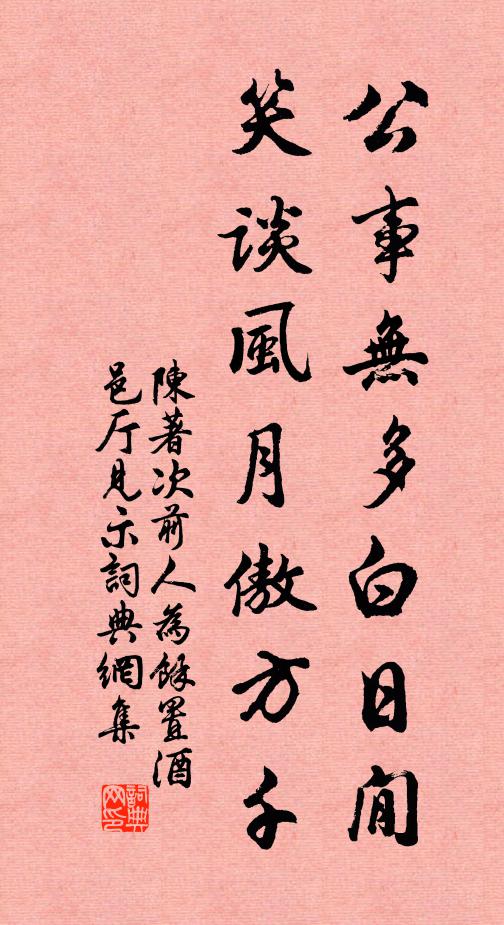 公事無多白日閒
笑談風月傲方千
陳著次前人為餘置酒
邑厅見示詞典網集
詞典
网印